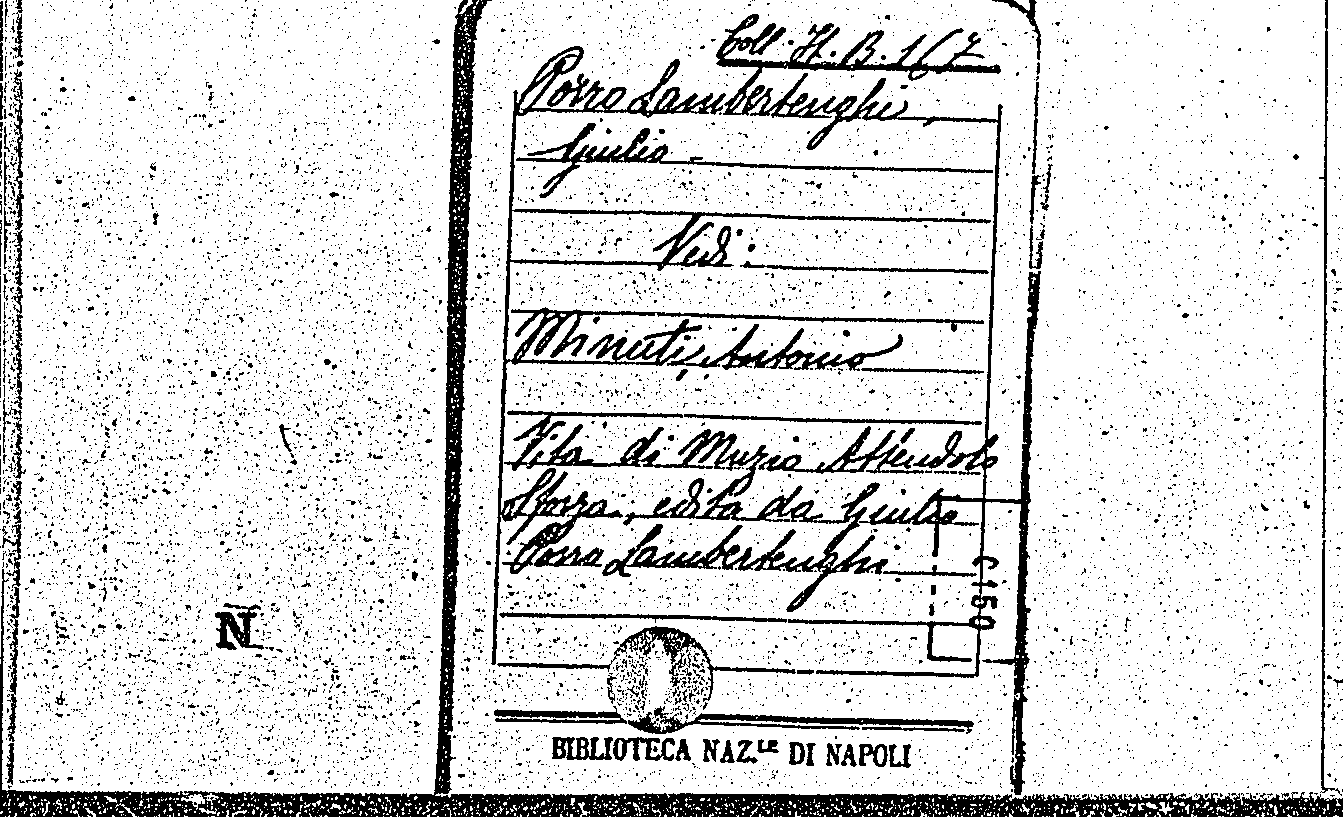 Coll. It. B. 167
Porro Lambertenghi,
Giulio -
Vedi:
Minuti, Antonio
Vita di Muzio Attendolo
Sforza, edita da Giulio
Porro Lambertenghi
C150
N
BIBLIOTECA NAZ.LE DI NAPOLI